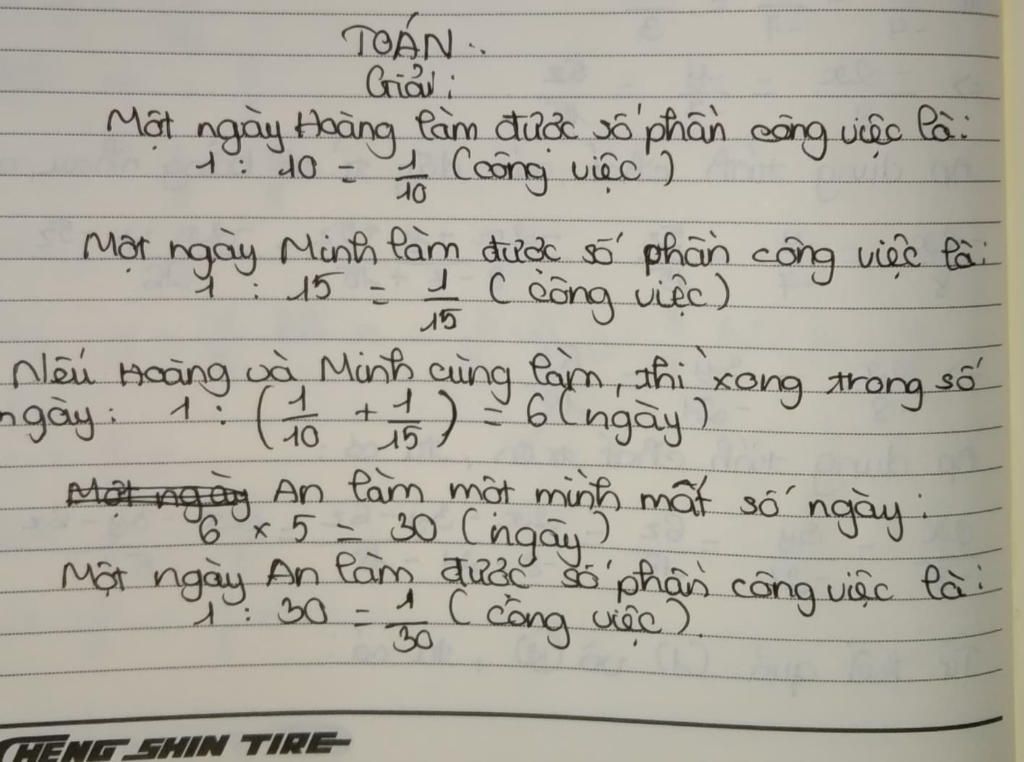 TOÁN..
Giải:
Một ngày Hoàng làm được số phần công việc là:
1 : 10 = 1/10 (công việc)
Một ngày Minh làm được số phần công việc là:
1 : 15 = 1/15 (công việc)
Nếu Hoàng và Minh cùng làm, thì xong trong số
ngày: 1 : (1/10 + 1/15) = 6 (ngày)
Một ngày An làm một mình mất số ngày:
6 × 5 = 30 (ngày)
Một ngày An làm được số phần công việc là:
1 : 30 = 1/30 (công việc).
CHENG SHIN TIRE